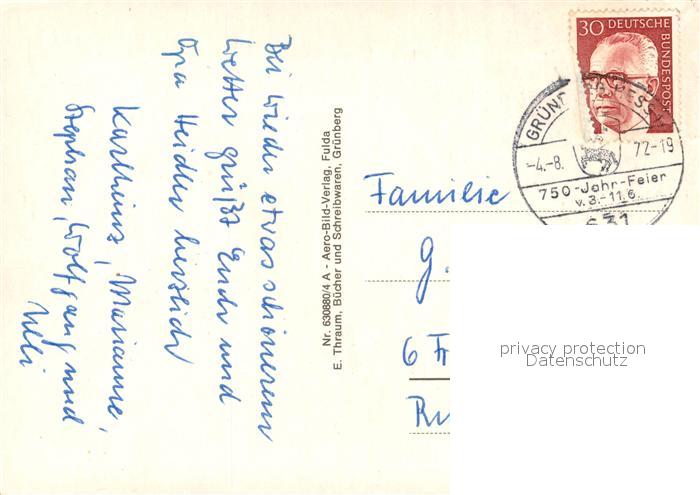 Bei wieder etwas schönerem
Wetter grüßt Euch und
Opa Heidler herzlich
Karlheinz, Marianne,
Stephan, Wolfgang und
Ulli
Nr. 630880/4 A - Aero-Bild-Verlag, Fulda
E. Thraum, Bücher und Schreibwaren, Grünberg
30 DEUTSCHE BUNDESPOST
GRÜN HESS
-4.-8. 72-19
750-Jahr-Feier
v. 3.-11.6.
631
Familie
G.
6 Fr
privacy protection
Datenschutz